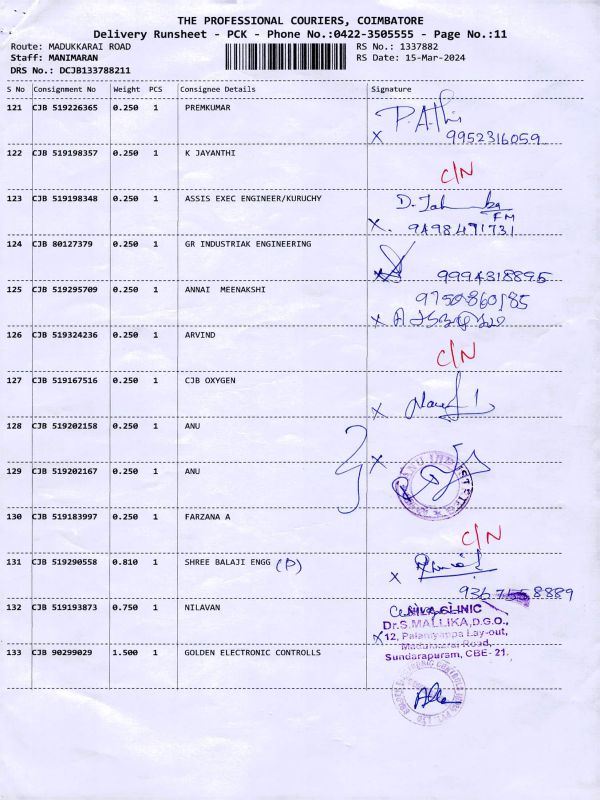 THE PROFESSIONAL COURIERS, COIMBATORE
Delivery Runsheet - PCK - Phone No.:0422-3505555 - Page No.:11
Route: MADUKKARAI ROAD RS No.: 1337882
Staff: MANIMARAN RS Date: 15-Mar-2024
DRS No.: DCJB133788211
S No Consignment No Weight PCS Consignee Details Signature
121 CJB 519226365 0.250 1 PREMKUMAR
X 9952316059
122 CJB 519198357 0.250 1 K JAYANTHI
C/N
123 CJB 519198348 0.250 1 ASSIS EXEC ENGINEER/KURUCHY
FM
X. 9498491731
124 CJB 80127379 0.250 1 GR INDUSTRIAK ENGINEERING
9994318895
125 CJB 519295709 0.250 1 ANNAI MEENAKSHI
X
126 CJB 519324236 0.250 1 ARVIND
C/N
127 CJB 519167516 0.250 1 CJB OXYGEN
X
128 CJB 519202158 0.250 1 ANU
X
129 CJB 519202167 0.250 1 ANU
130 CJB 519183997 0.250 1 FARZANA A
C/N
131 CJB 519290558 0.810 1 SHREE BALAJI ENGG (D)
X
132 CJB 519193873 0.750 1 NILAVAN
NIVA CLINIC
Dr.S.MALLIKA,D.G.O.,
X 12, Palaniyappa Lay-out,
Madukkarai Road,
Sundarapuram, CBE- 21.
133 CJB 90299029 1.500 1 GOLDEN ELECTRONIC CONTROLLS